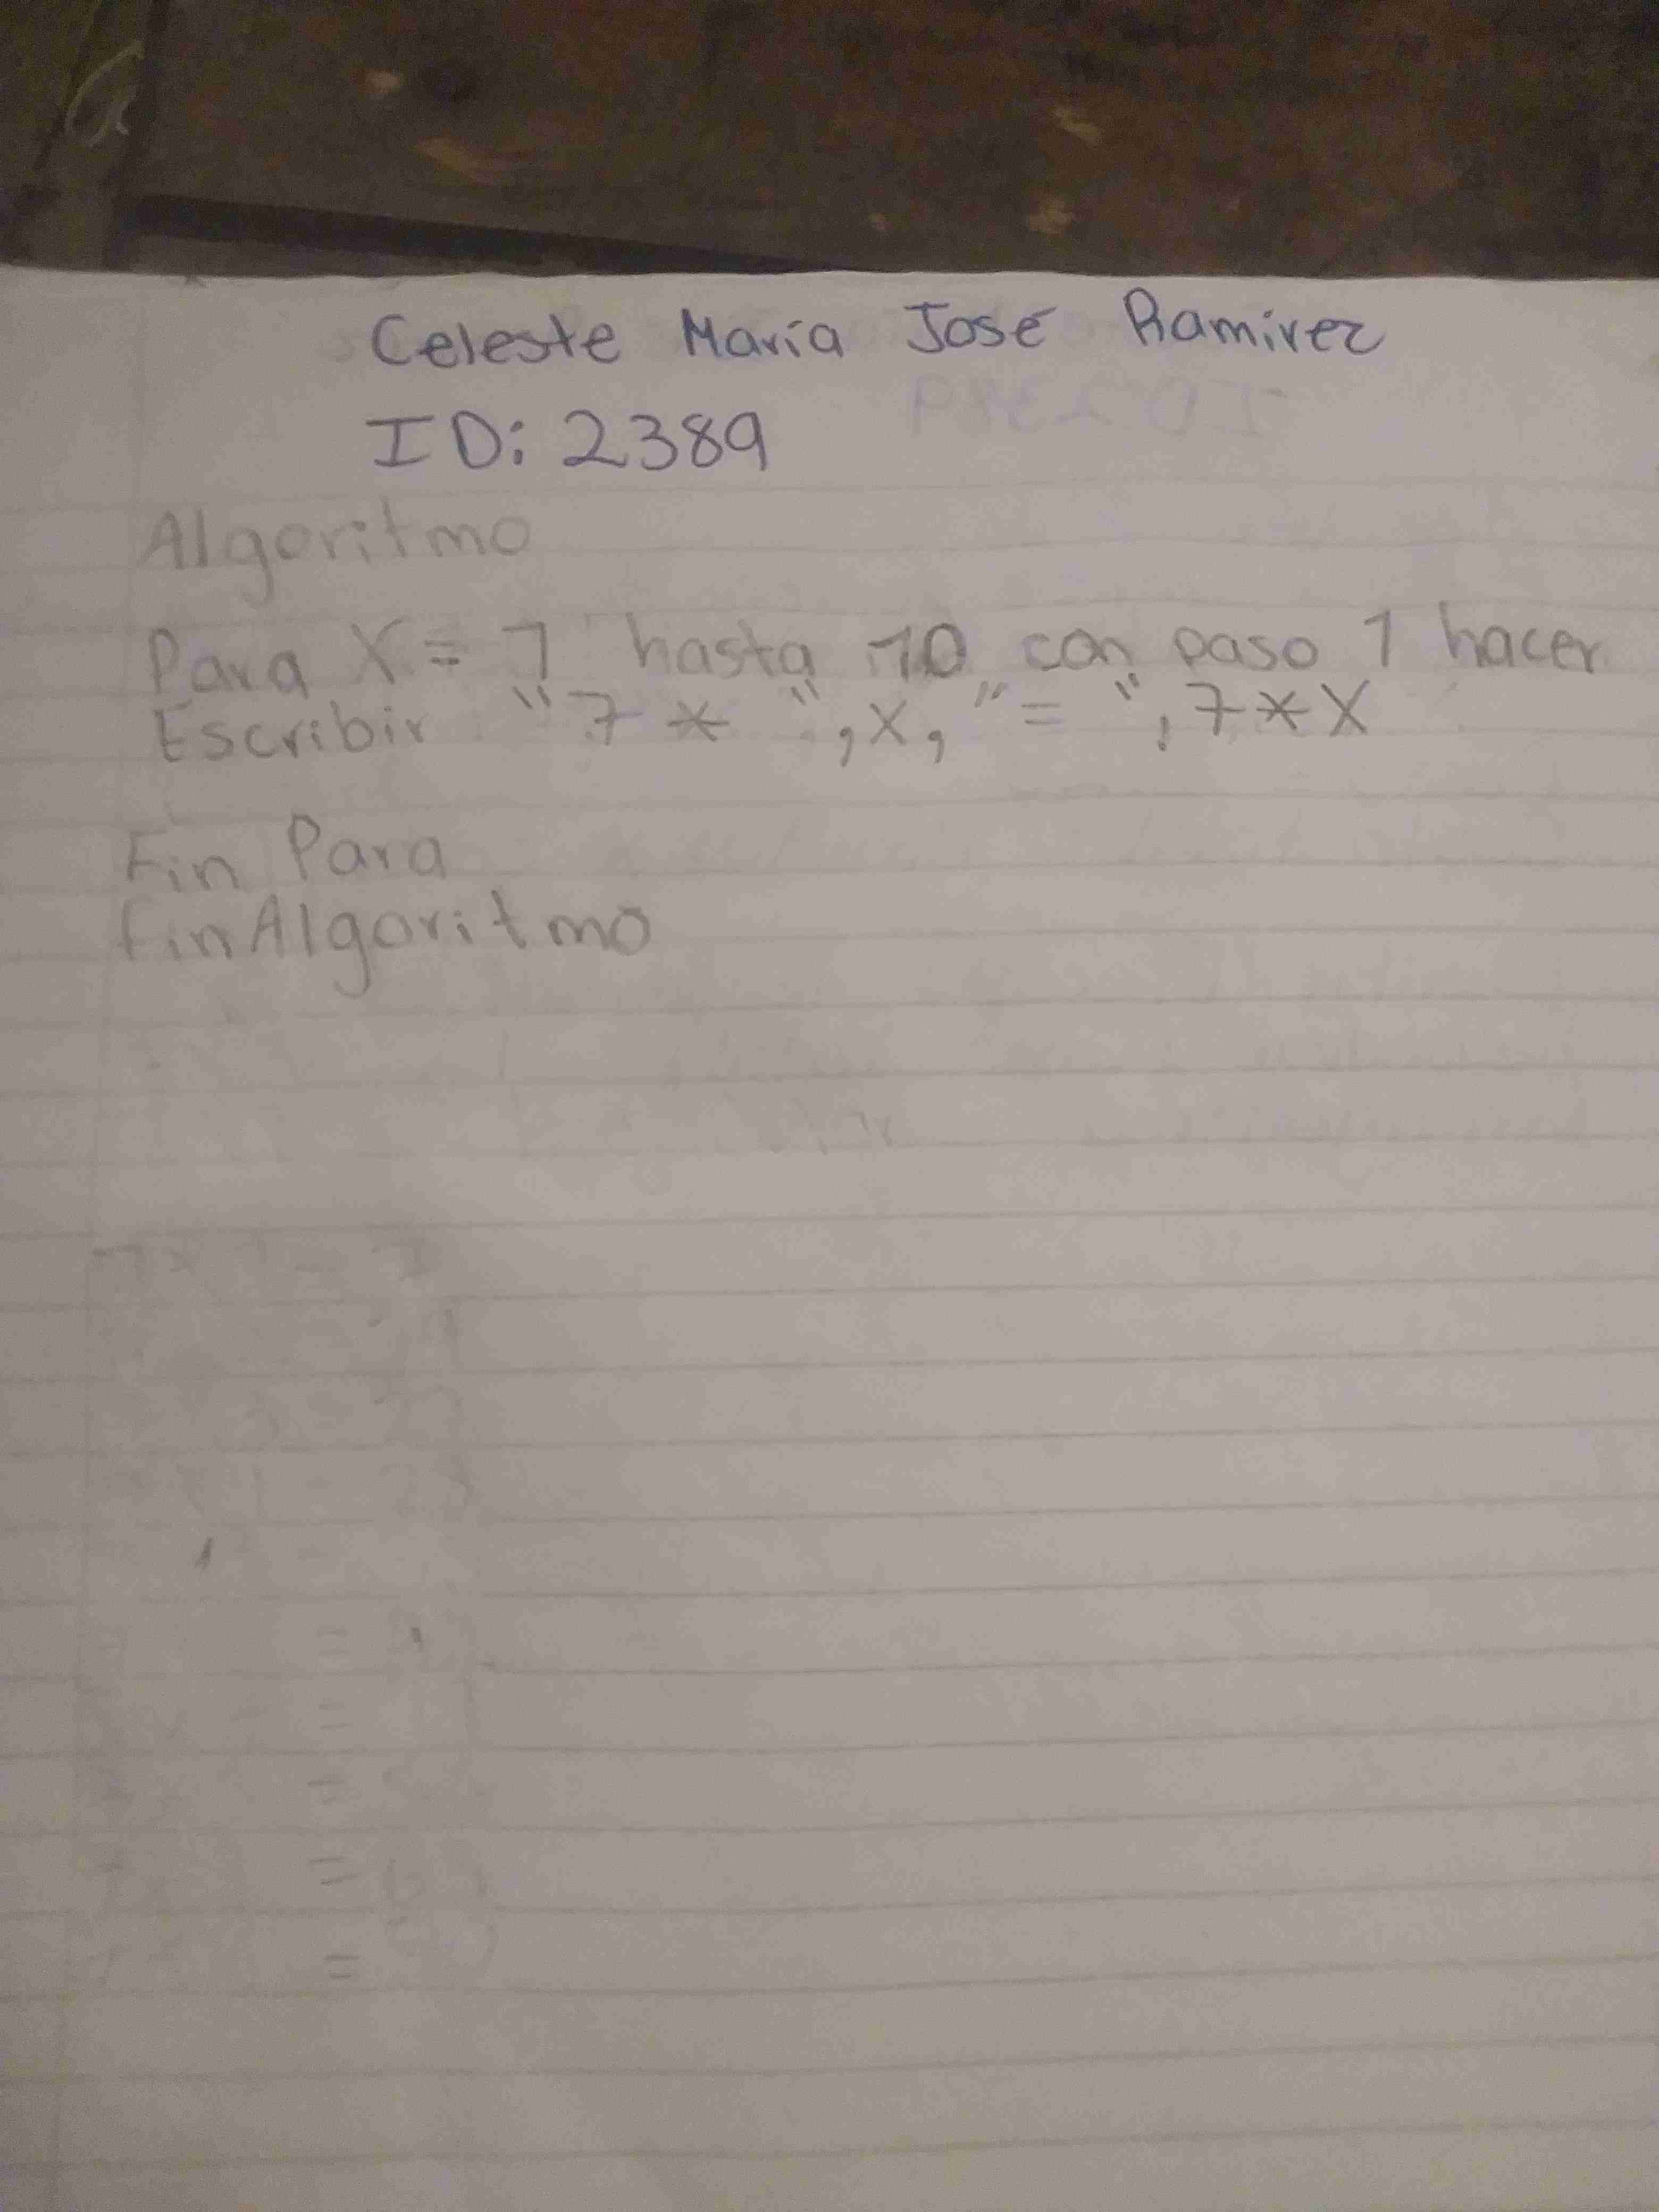 Celeste María José Ramirez
ID: 2389
Algoritmo
Para X = 1 hasta 10 con paso 1 hacer
Escribir "7 * ", X, " = ", 7 * X
Fin Para
finAlgoritmo